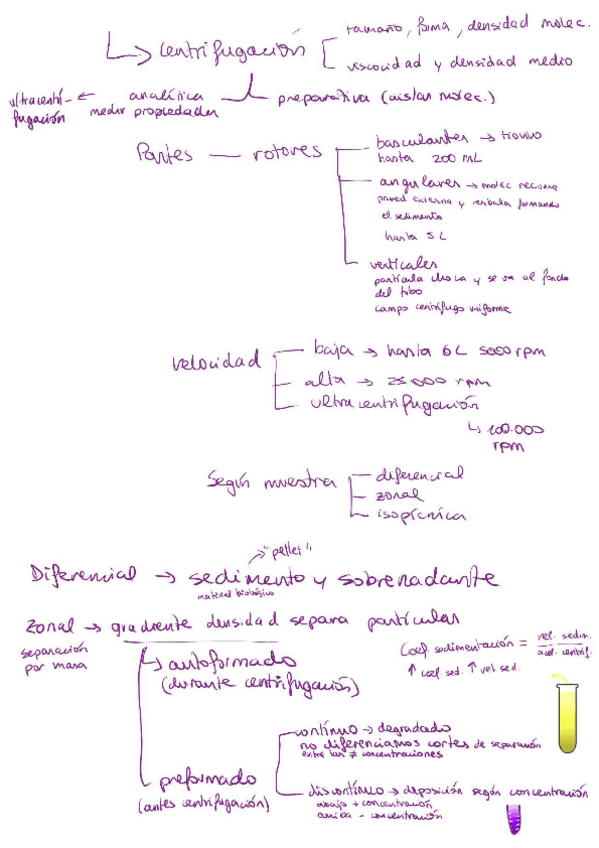 centrifugación
tamaño, forma, densidad molec.
viscocidad y densidad medio
ultracentri-
fugación
analítica
medir propiedades
preparativa (aislar molec.)
Partes — rotores
basculantes → tiovivo
hasta 200 mL
angulares → molec recorre
pared externa y resbala formando
el sedimento
hasta 5L
verticales
partícula choca y se va al fondo
del tubo
campo centrífugo uniforme
velocidad
baja → hasta 6L 5000 rpm
alta → 25000 rpm
ultracentrifugación
↳ 100.000
rpm
Según muestra
diferencial
zonal
isopícnica
"pellet"
Diferencial → sedimento y sobrenadante
material biológico
zonal → gradiente densidad separa partículas
separación
por masa
Coef. sedimentación = vel. sedim. / acel. centrif.
↑ coef. sed. ↑ vel sed.
↳ autoformado
(durante centrifugación)
preformado
(antes centrifugación)
contínuo → degradado
no diferenciamos cortes de separación
entre las ≠ concentraciones
discontínuo → deposición según concentración
abajo + concentración
arriba - concentración